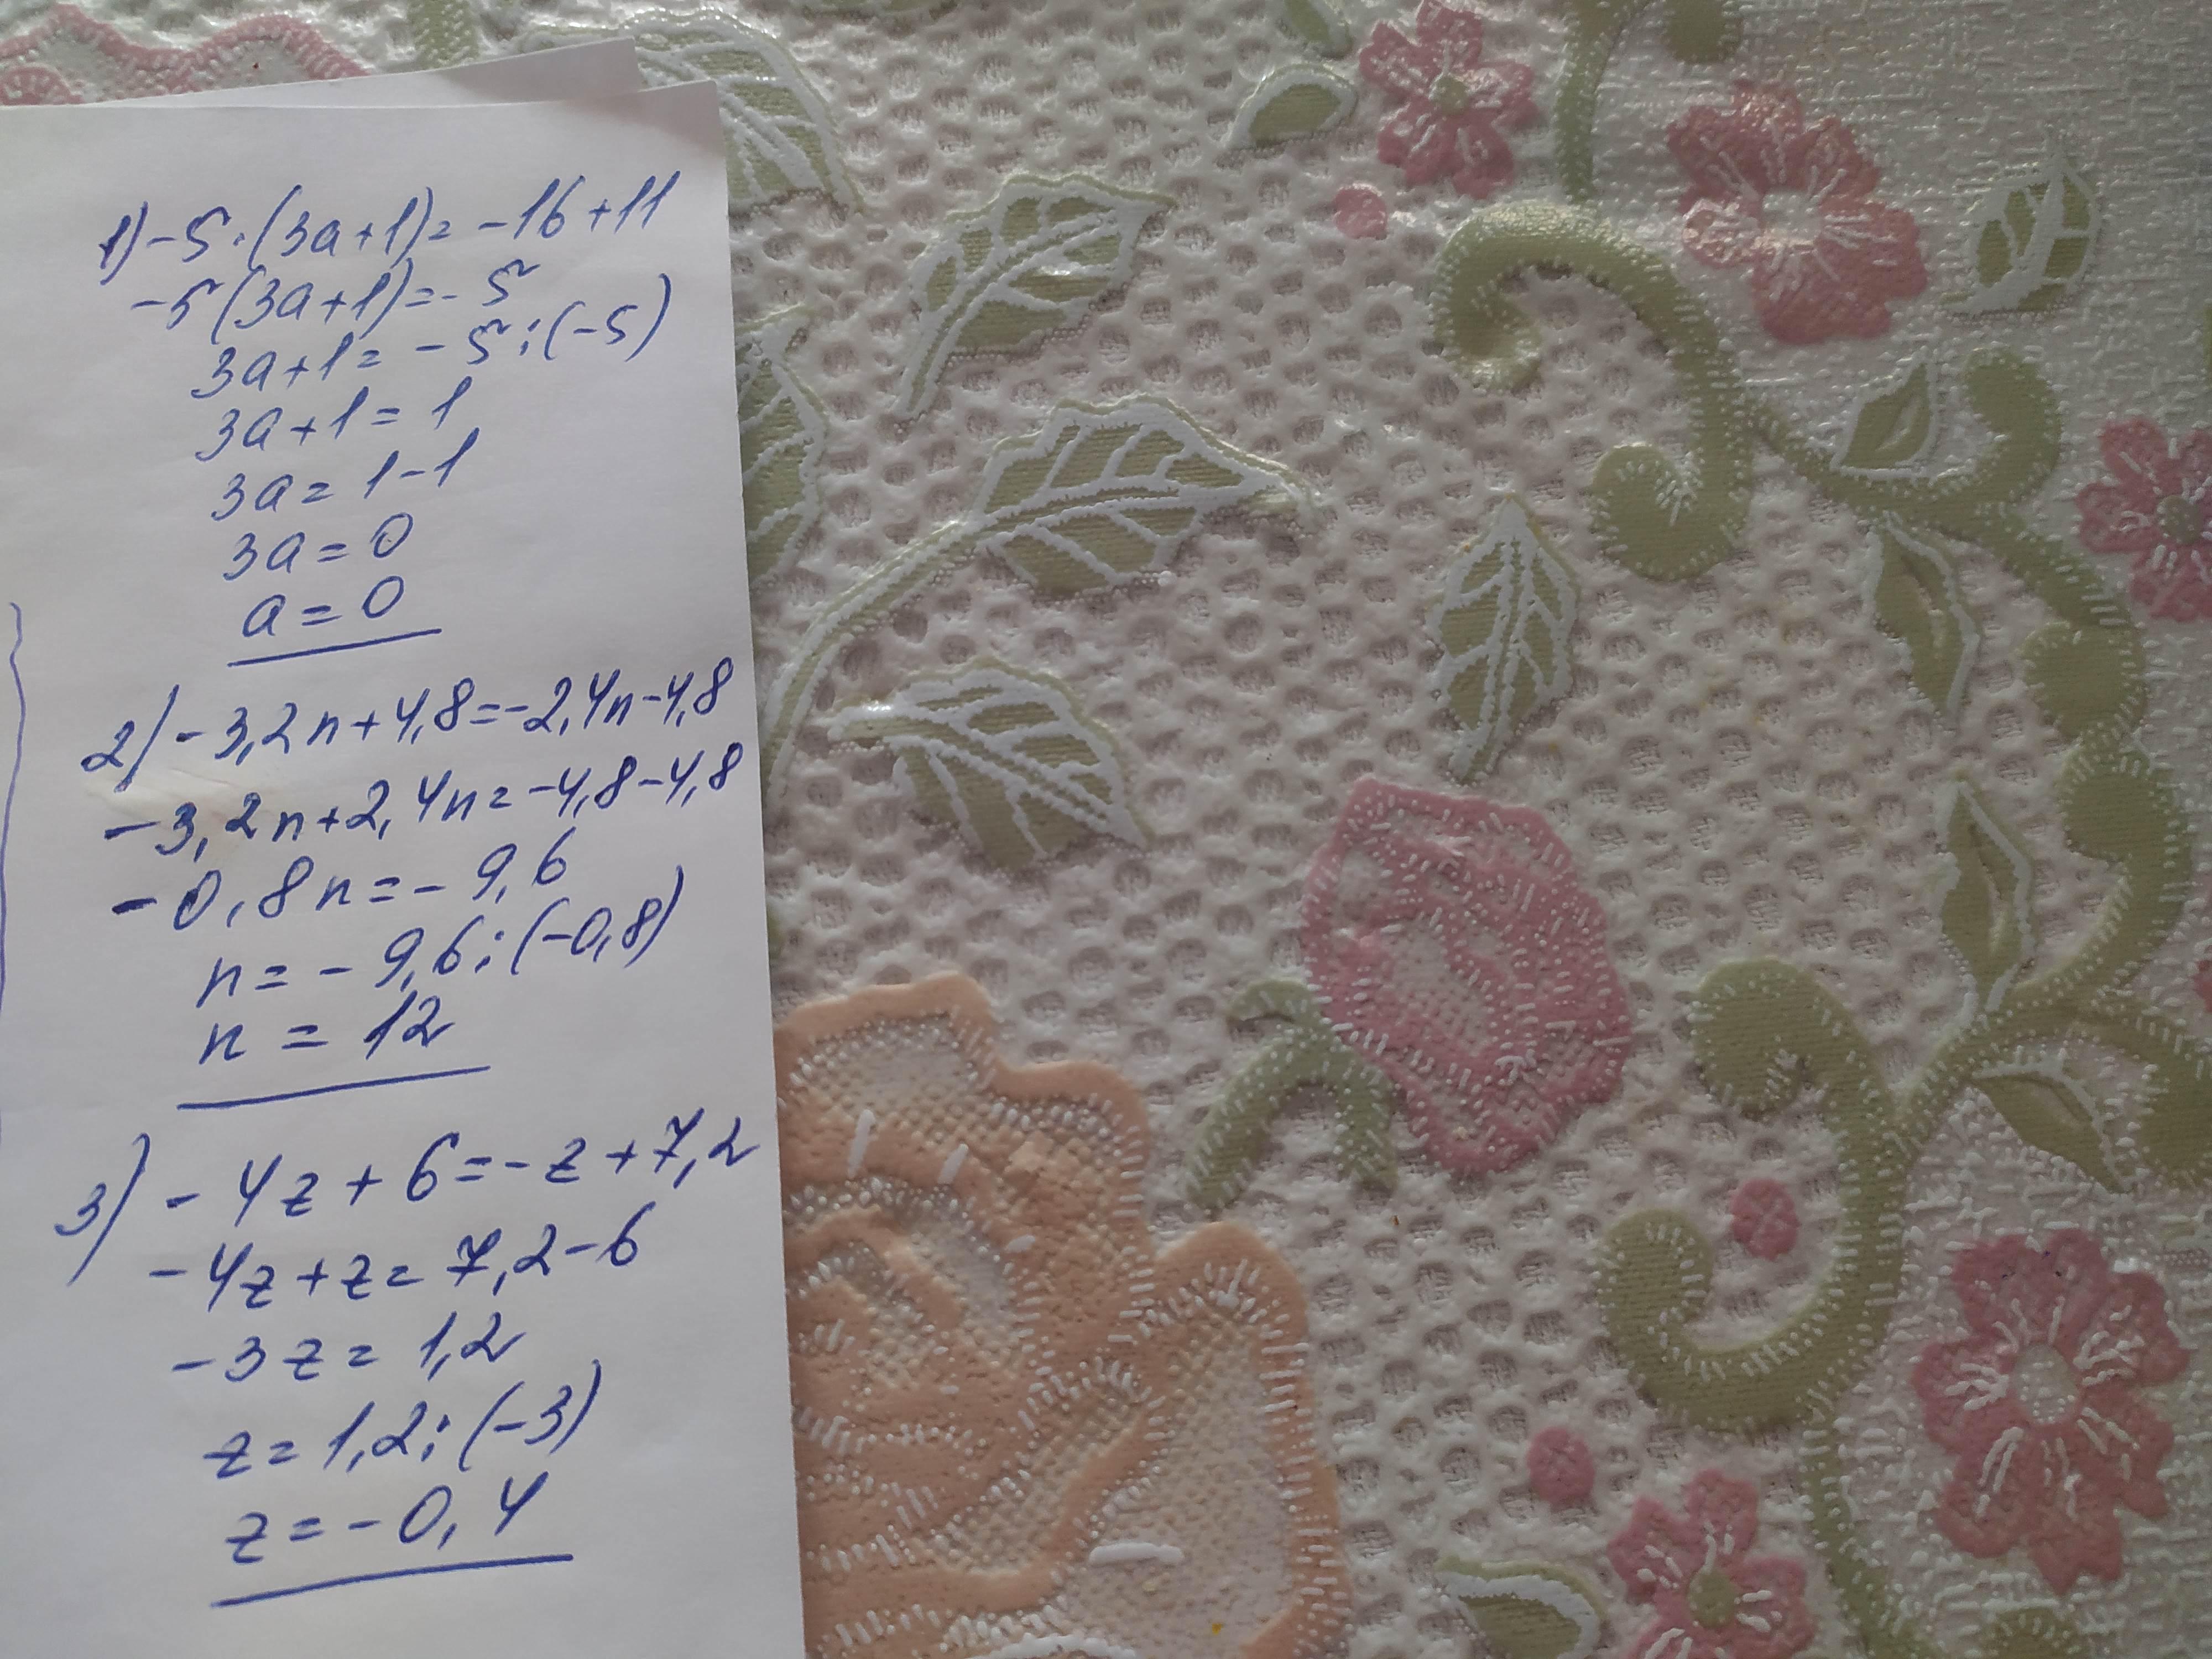 1) -5·(3a+1)= -16+11
-5(3a+1)=-5
3a+1= -5:(-5)
3a+1=1
3a=1-1
3a=0
a=0
2) -3,2n+4,8=-2,4n-4,8
-3,2n+2,4n=-4,8-4,8
-0,8n=-9,6
n=-9,6:(-0,8)
n=12
3) -4z+6=-z+7,2
-4z+z=7,2-6
-3z=1,2
z=1,2:(-3)
z=-0,4